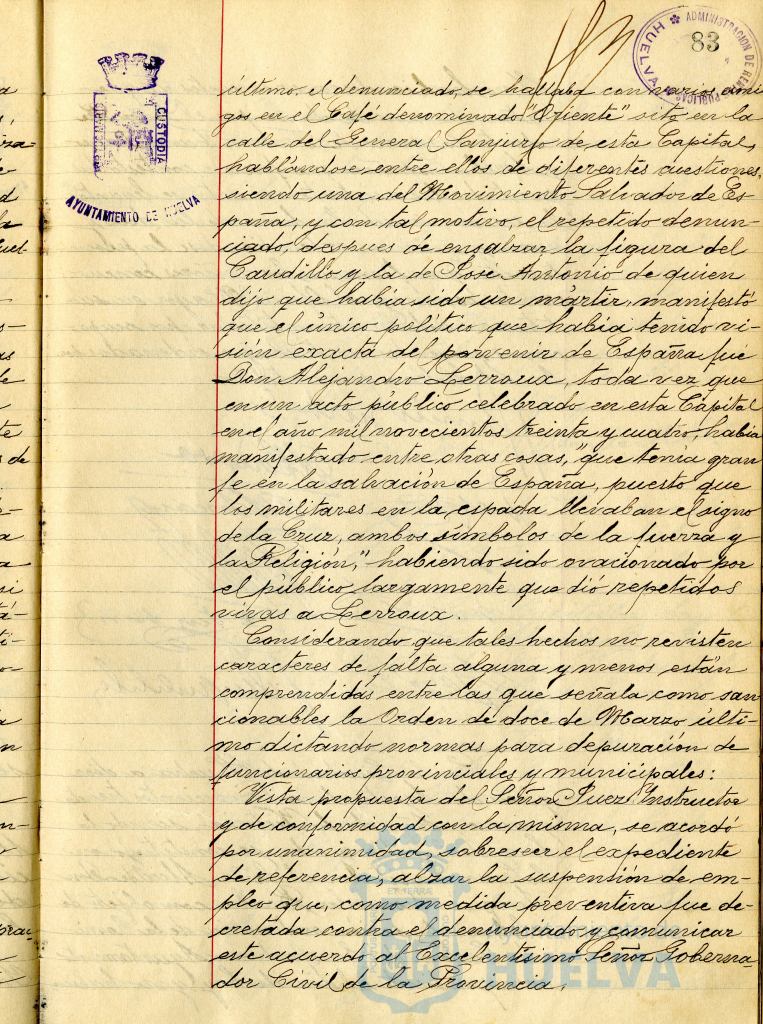 83
ADMINISTRACION DE REN
PUBLICAS
HUELVA
CUSTODIA
AYUNTAMIENTO DE HUELVA
último, el denunciado, se hallaba con varios ami
gos en el Café denominado "Oriente" sito en la
calle del General Sanjurjo de esta Capital,
hablándose entre ellos de diferentes cuestiones,
siendo una del Movimiento Salvador de Es
paña, y con tal motivo, el repetido denun
ciado, despues de ensalzar la figura del
Caudillo y la de José Antonio de quien
dijo que había sido un mártir, manifestó
que el único político que había tenido vi-
sión exacta del porvenir de España fué
Don Alejandro Lerroux, toda vez que
en un acto público celebrado en esta Capital
en el año mil novecientos treinta y cuatro, había
manifestado entre otras cosas, "que tenia gran
fe en la salvación de España, puesto que
los militares en la espada llevaban el signo
de la Cruz, ambos símbolos de la fuerza y
la Religión," habiendo sido ovacionado por
el público largamente que dió repetidos
vivas a Lerroux.
Considerando que tales hechos no revisten
caracteres de falta alguna y menos están
comprendidas entre las que señala como san
cionables la Orden de doce de Marzo últi-
mo dictando normas para depuración de
funcionarios provinciales y municipales:
Vista propuesta del Señor Juez Instructor
y de conformidad con la misma, se acordó
por unanimidad, sobreseer el expediente
de referencia, alzar la suspensión de em-
pleo que, como medida preventiva fue de-
cretada contra el denunciado y comunicar
este acuerdo al Excelentísimo Señor Goberna-
dor Civil de la Provincia.
HUELVA